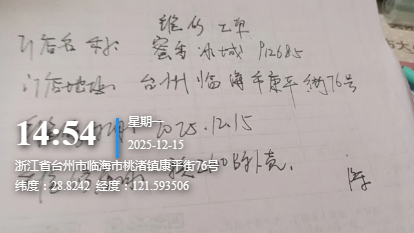 维修工单
门店名称: 蜜雪冰城 912685
门店地址: 台州临海市康平街76号
2025.12.15
14:54
星期一
2025-12-15
浙江省台州市临海市桃渚镇康平街76号
纬度：28.8242 经度：121.593506